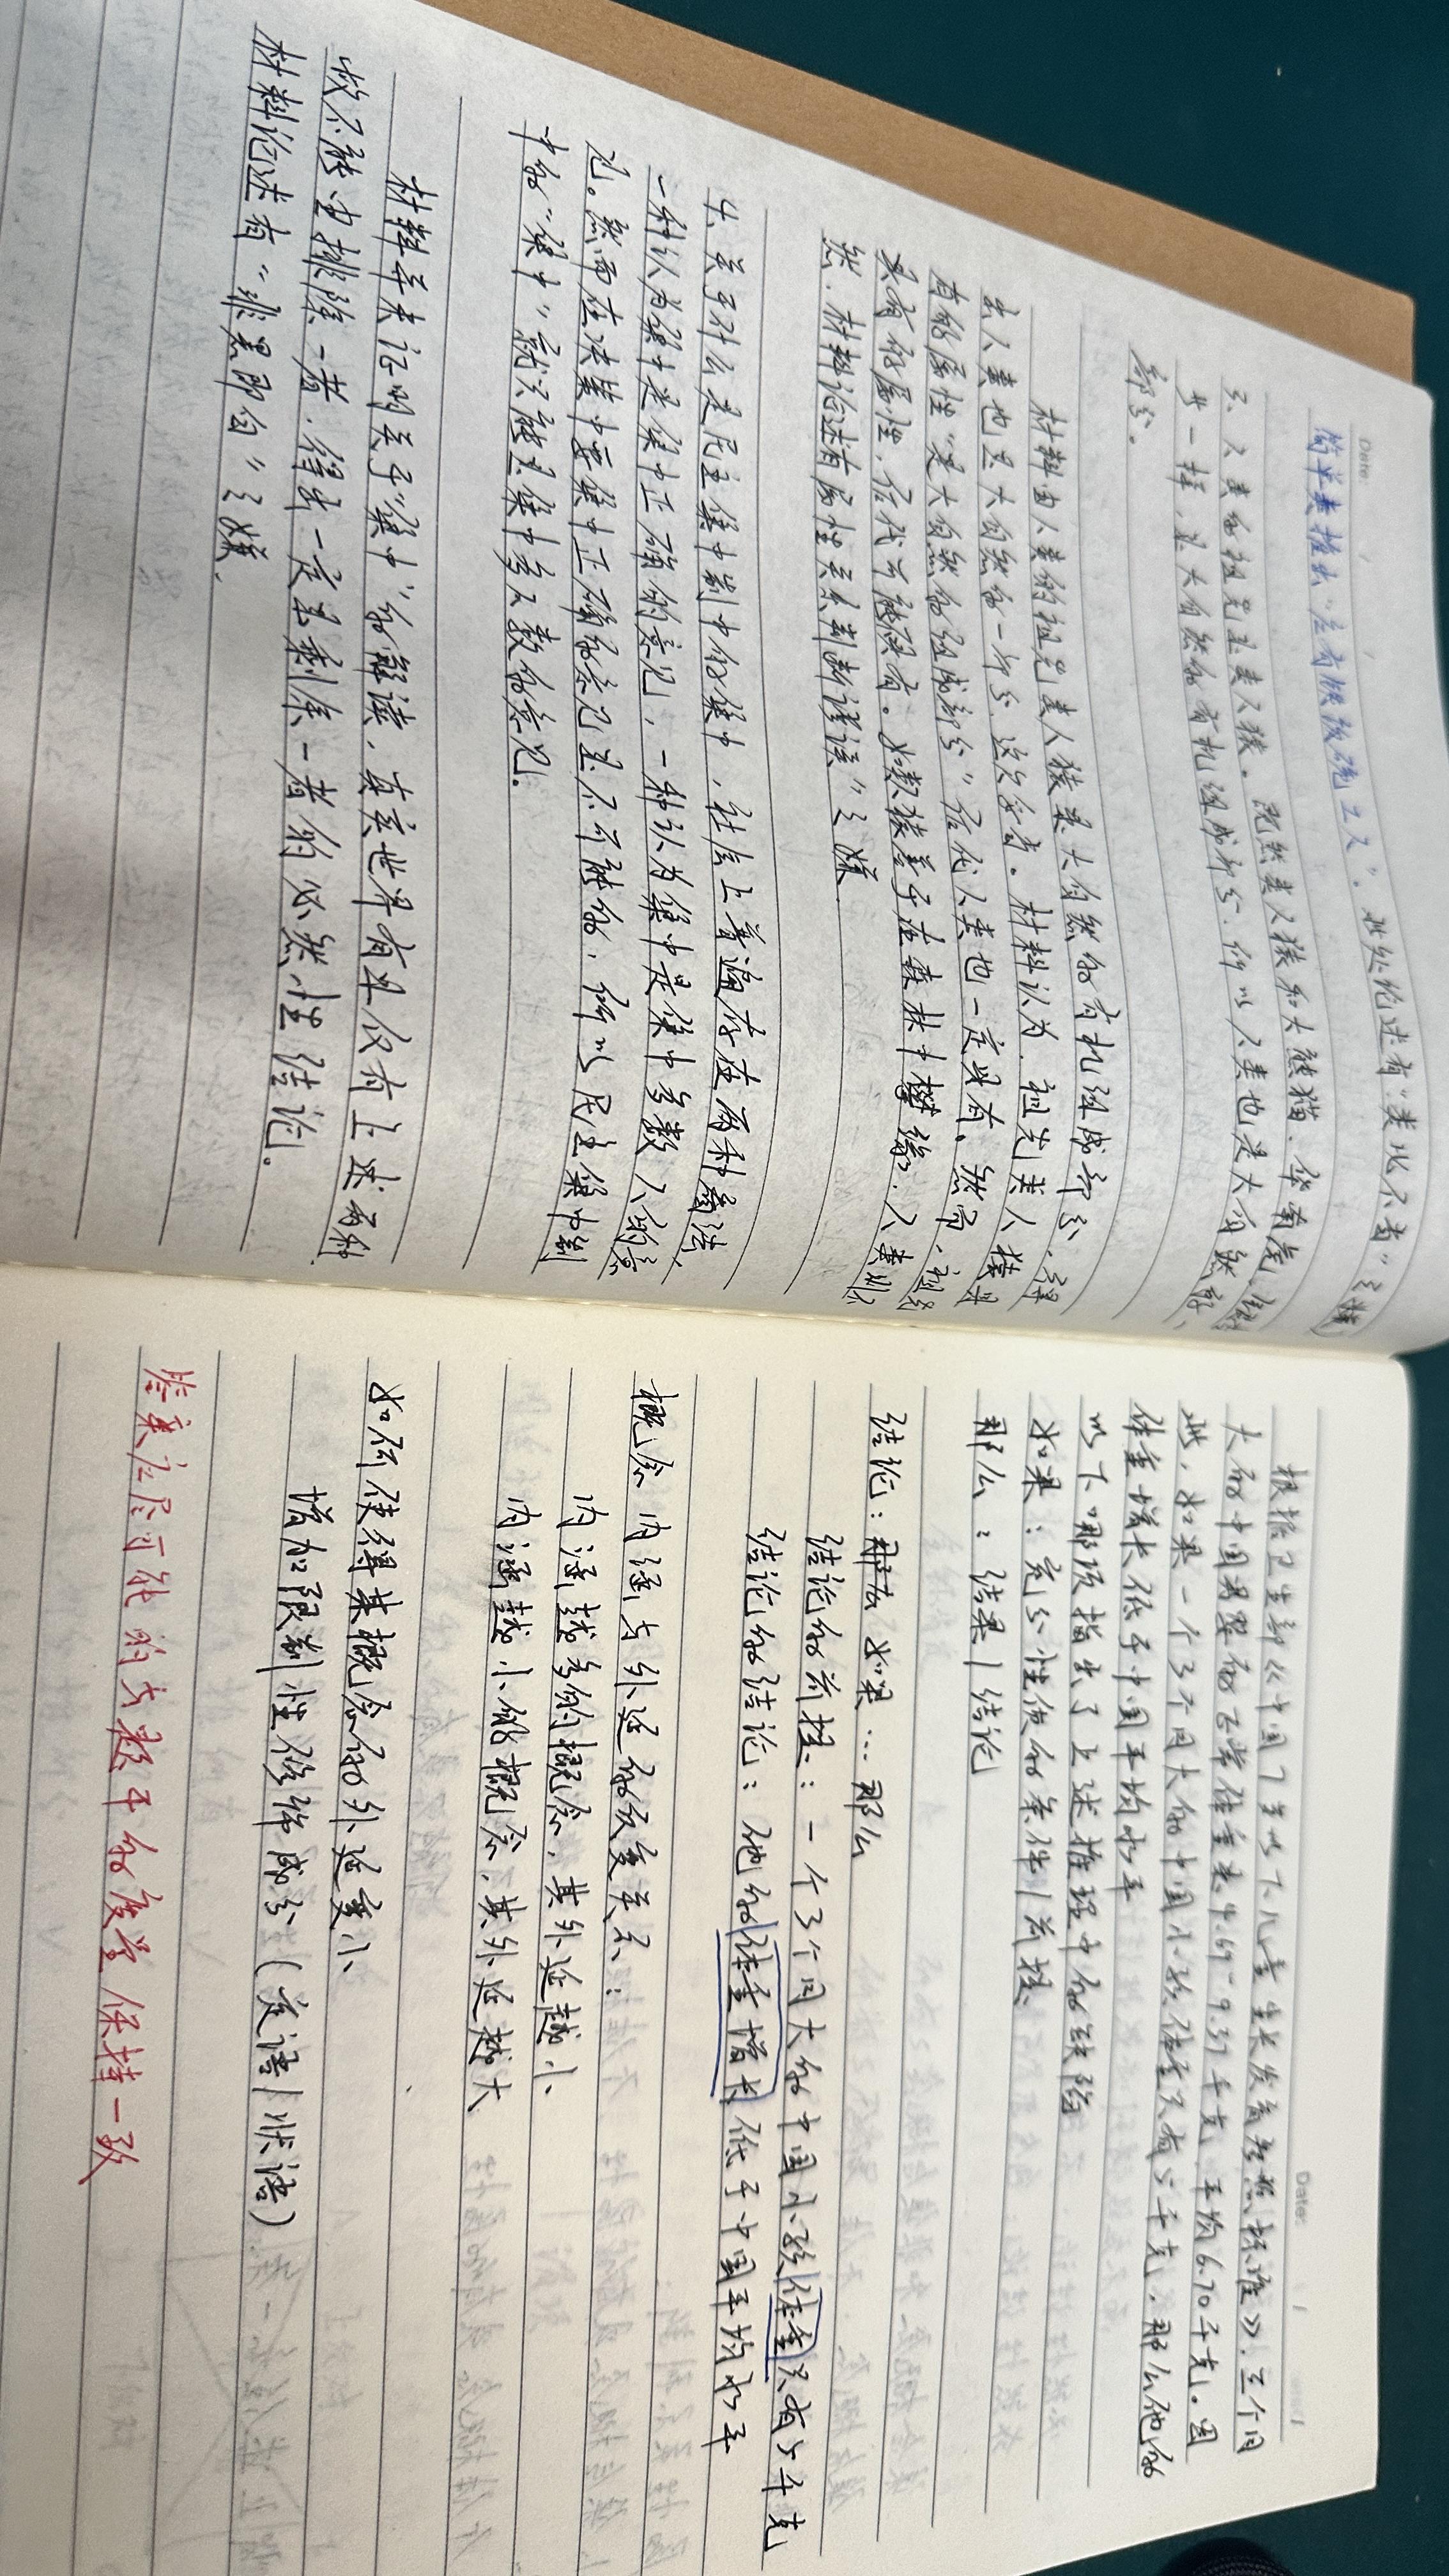 Date:
简单类推出“应有快递施工人”。此处论述有“类比不当”之嫌
3、人类的祖先是类人猿。既然类人猿和大熊猫、华南虎、
一样，是大自然的有机组成部分，所以人类也是大自然
部分。
材料由人类的祖先类人猿是大自然的有机组成部分，得
出人类也是大自然的一部分，这欠妥当。材料认为，祖先类人猿具
有的属性“是大自然的组成部分”后代人类也一定具有。然而，祖先
具有的属性，后代可能没有。如类人猿善于在森林中攀缘，人类则不
然，材料论述有“属性关系判断谬误”之嫌
4、关于什么是民主集中制中的集中，社会上普遍存在两种看法，
一种认为集中是集中正确的意见，一种认为集中是集中多数人的意
见。然而在决策中要集中正确的意见是不可能的，所以民主集中制
中的“集中”就只能是集中多数的意见。
材料并未证明关于“集中”的解读，真实世界有且仅有上述两种，
故不能由排除一者，得出一定是剩余一者的必然性结论。
材料论述有“非黑即白”之嫌，
Date:
根据卫生部《中国7岁以下儿童生长发育参照标准》，三个月
大的中国男婴的正常体重未4.69-9.37千克，平均6.70千克。因
此，如果一个3个月大的中国小孩体重只有5千克，那么他的
体重增长低于中国平均水平
以下哪项指出了上述推理中的缺陷
如果：充分性使的条件/前提
那么：结果/结论
结论：那么 如果…那么
结论的前提：一个3个月大的中国小孩体重只有5千克
结论的结论：他的体重增长低于中国平均水平
概念 内涵与外延的反变关系：
内涵越多的概念，其外延越小
内涵越小的概念，其外延越大
如何使得某概念的外延变小
增加限制性修饰成分（定语/状语）
答案应尽可能的与题干的度量保持一致